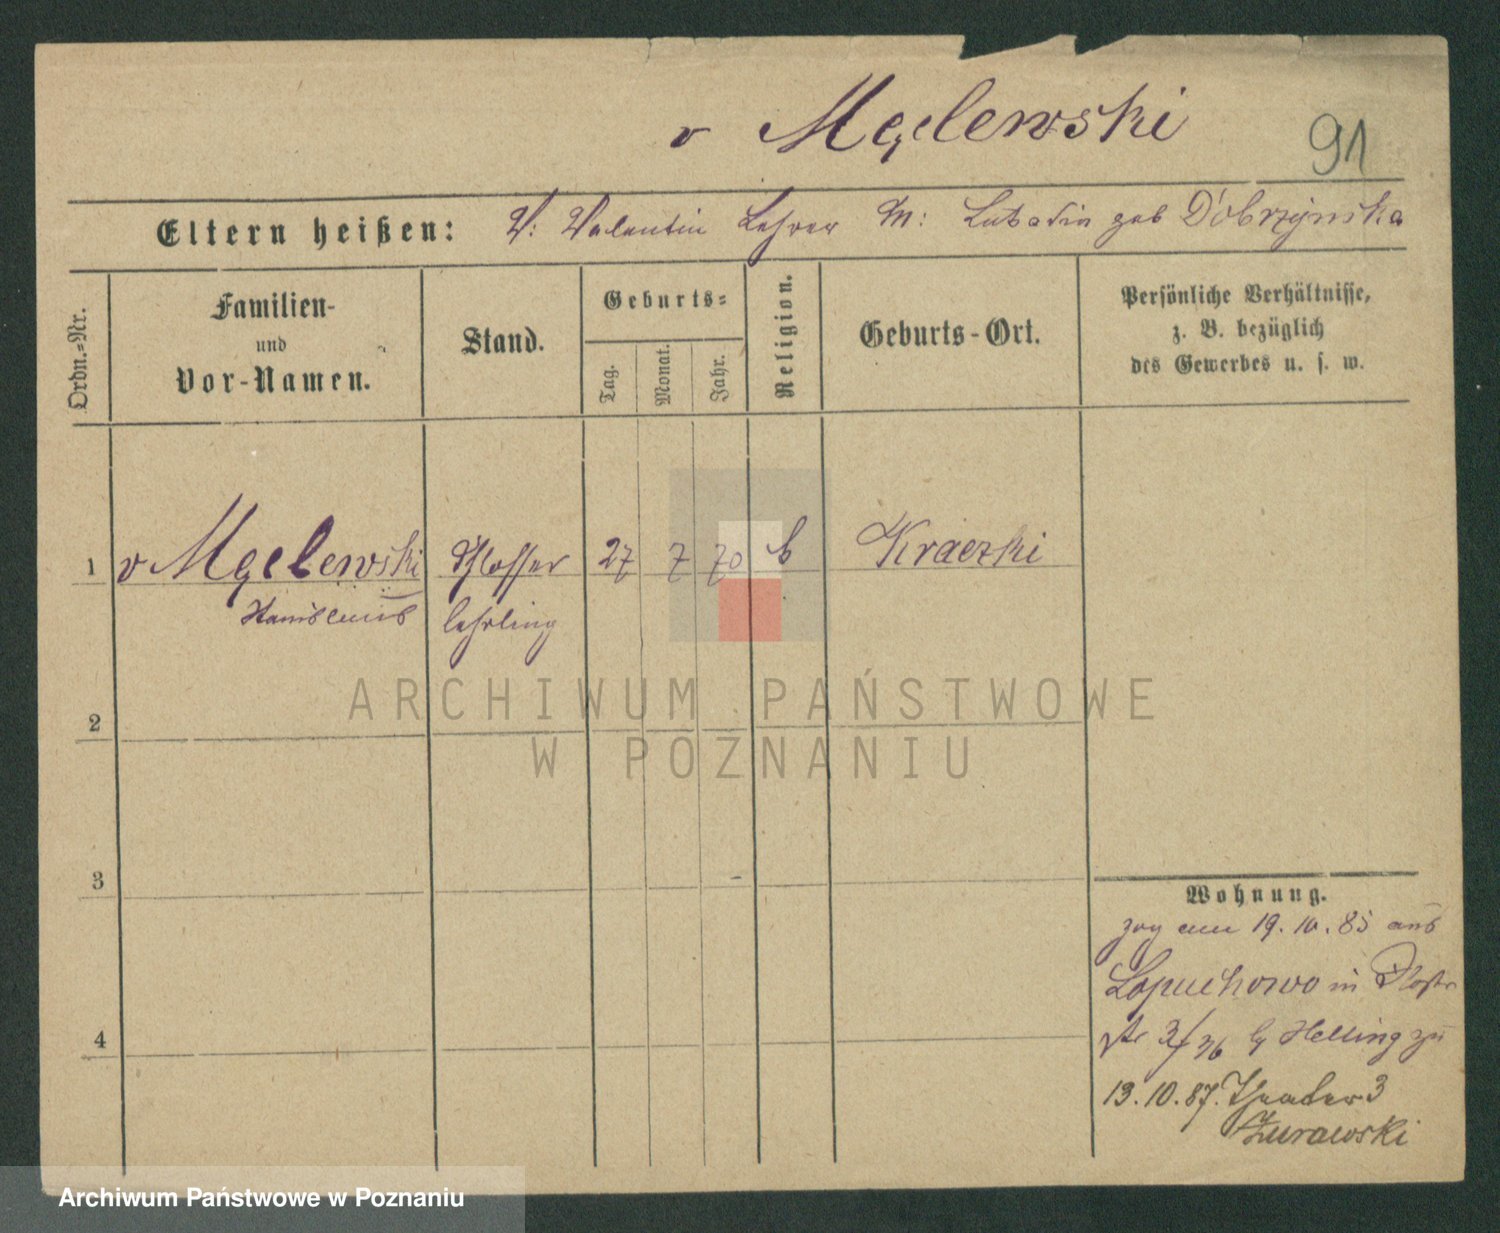 v Mgelewski
91
Eltern heißen: V: Valentin Lehrer M: geb Dobrzynska
Ordn.=Nr.
Familien-
und
Vor-Namen.
Stand.
Geburts=
Tag.
Monat.
Jahr.
Religion.
Geburts-Ort.
Persönliche Verhältnisse,
z. B. bezüglich
des Gewerbes u. s. w.
1 v Mgelewski Schlosser 27 7 70 k
Stanislaus lehrling
ARCHIWUM PAŃSTWOWE
2
W POZNANIU
3
Wohnung.
zog am 19.10.85 aus
Lopuchowo in
4
str 3/36 b Helling zu
13.10.87. Theater 3
Zurawski
Archiwum Państwowe w Poznaniu